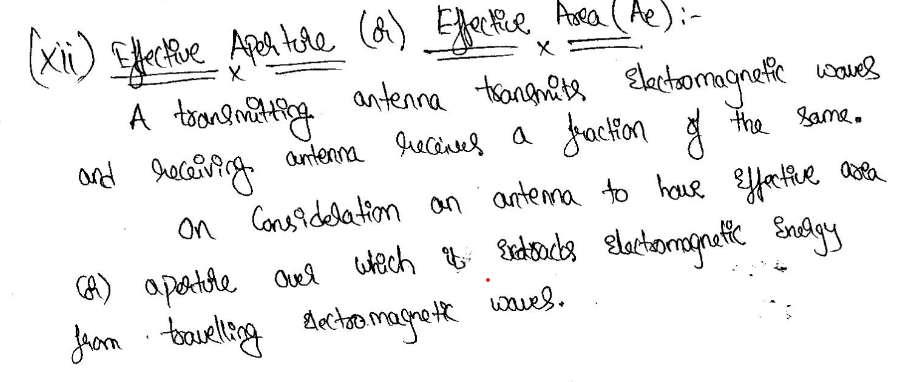 (xii) Effective Aperture (or) Effective Area (Ae) :-
A transmitting antenna transmits Electromagnetic waves
and receiving antenna receives a fraction of the same.
on Consideration an antenna to have Effective area
(or) aperture over which it Extracts Electromagnetic Energy
from travelling electromagnetic waves.